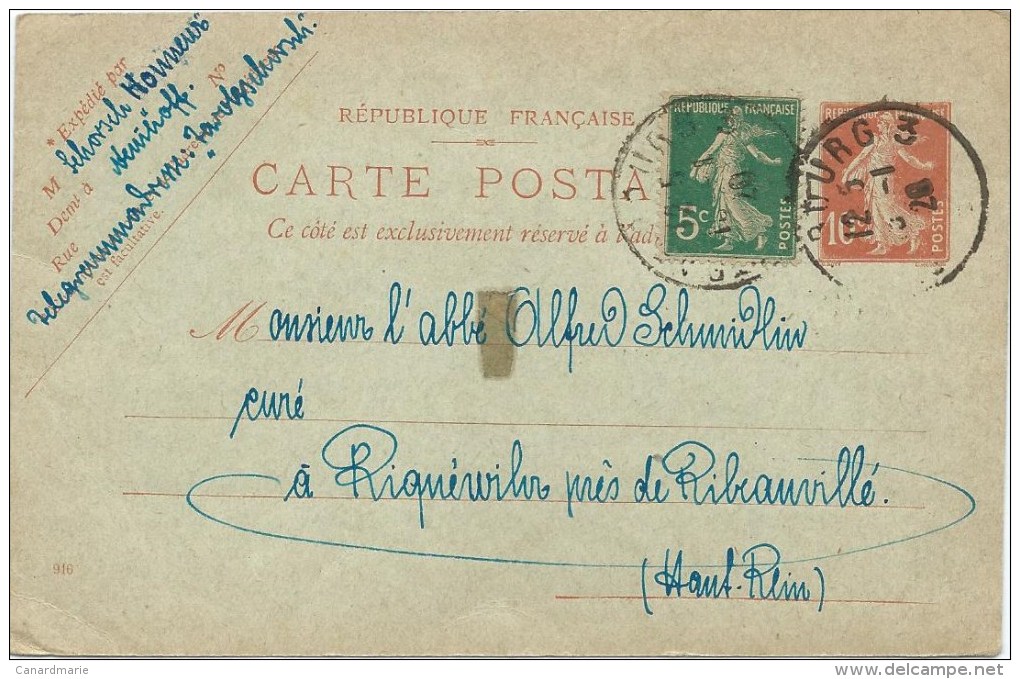 * Expédié par
M Schorsch
Demt à Neuhoff.
Rue No
est facultative.
RÉPUBLIQUE FRANÇAISE
CARTE POSTA
Ce côté est exclusivement réservé à l'ad
RÉPUBLIQUE FRANÇAISE
5c
POSTES
10
POSTES
URG 3
12 5
5 -1
20
Monsieur l'abbé Alfred Schmidlin
curé
à Riquéwihr près de Ribeauvillé.
(Haut-Rein)
916
Canardmarie
www.delcampe.net